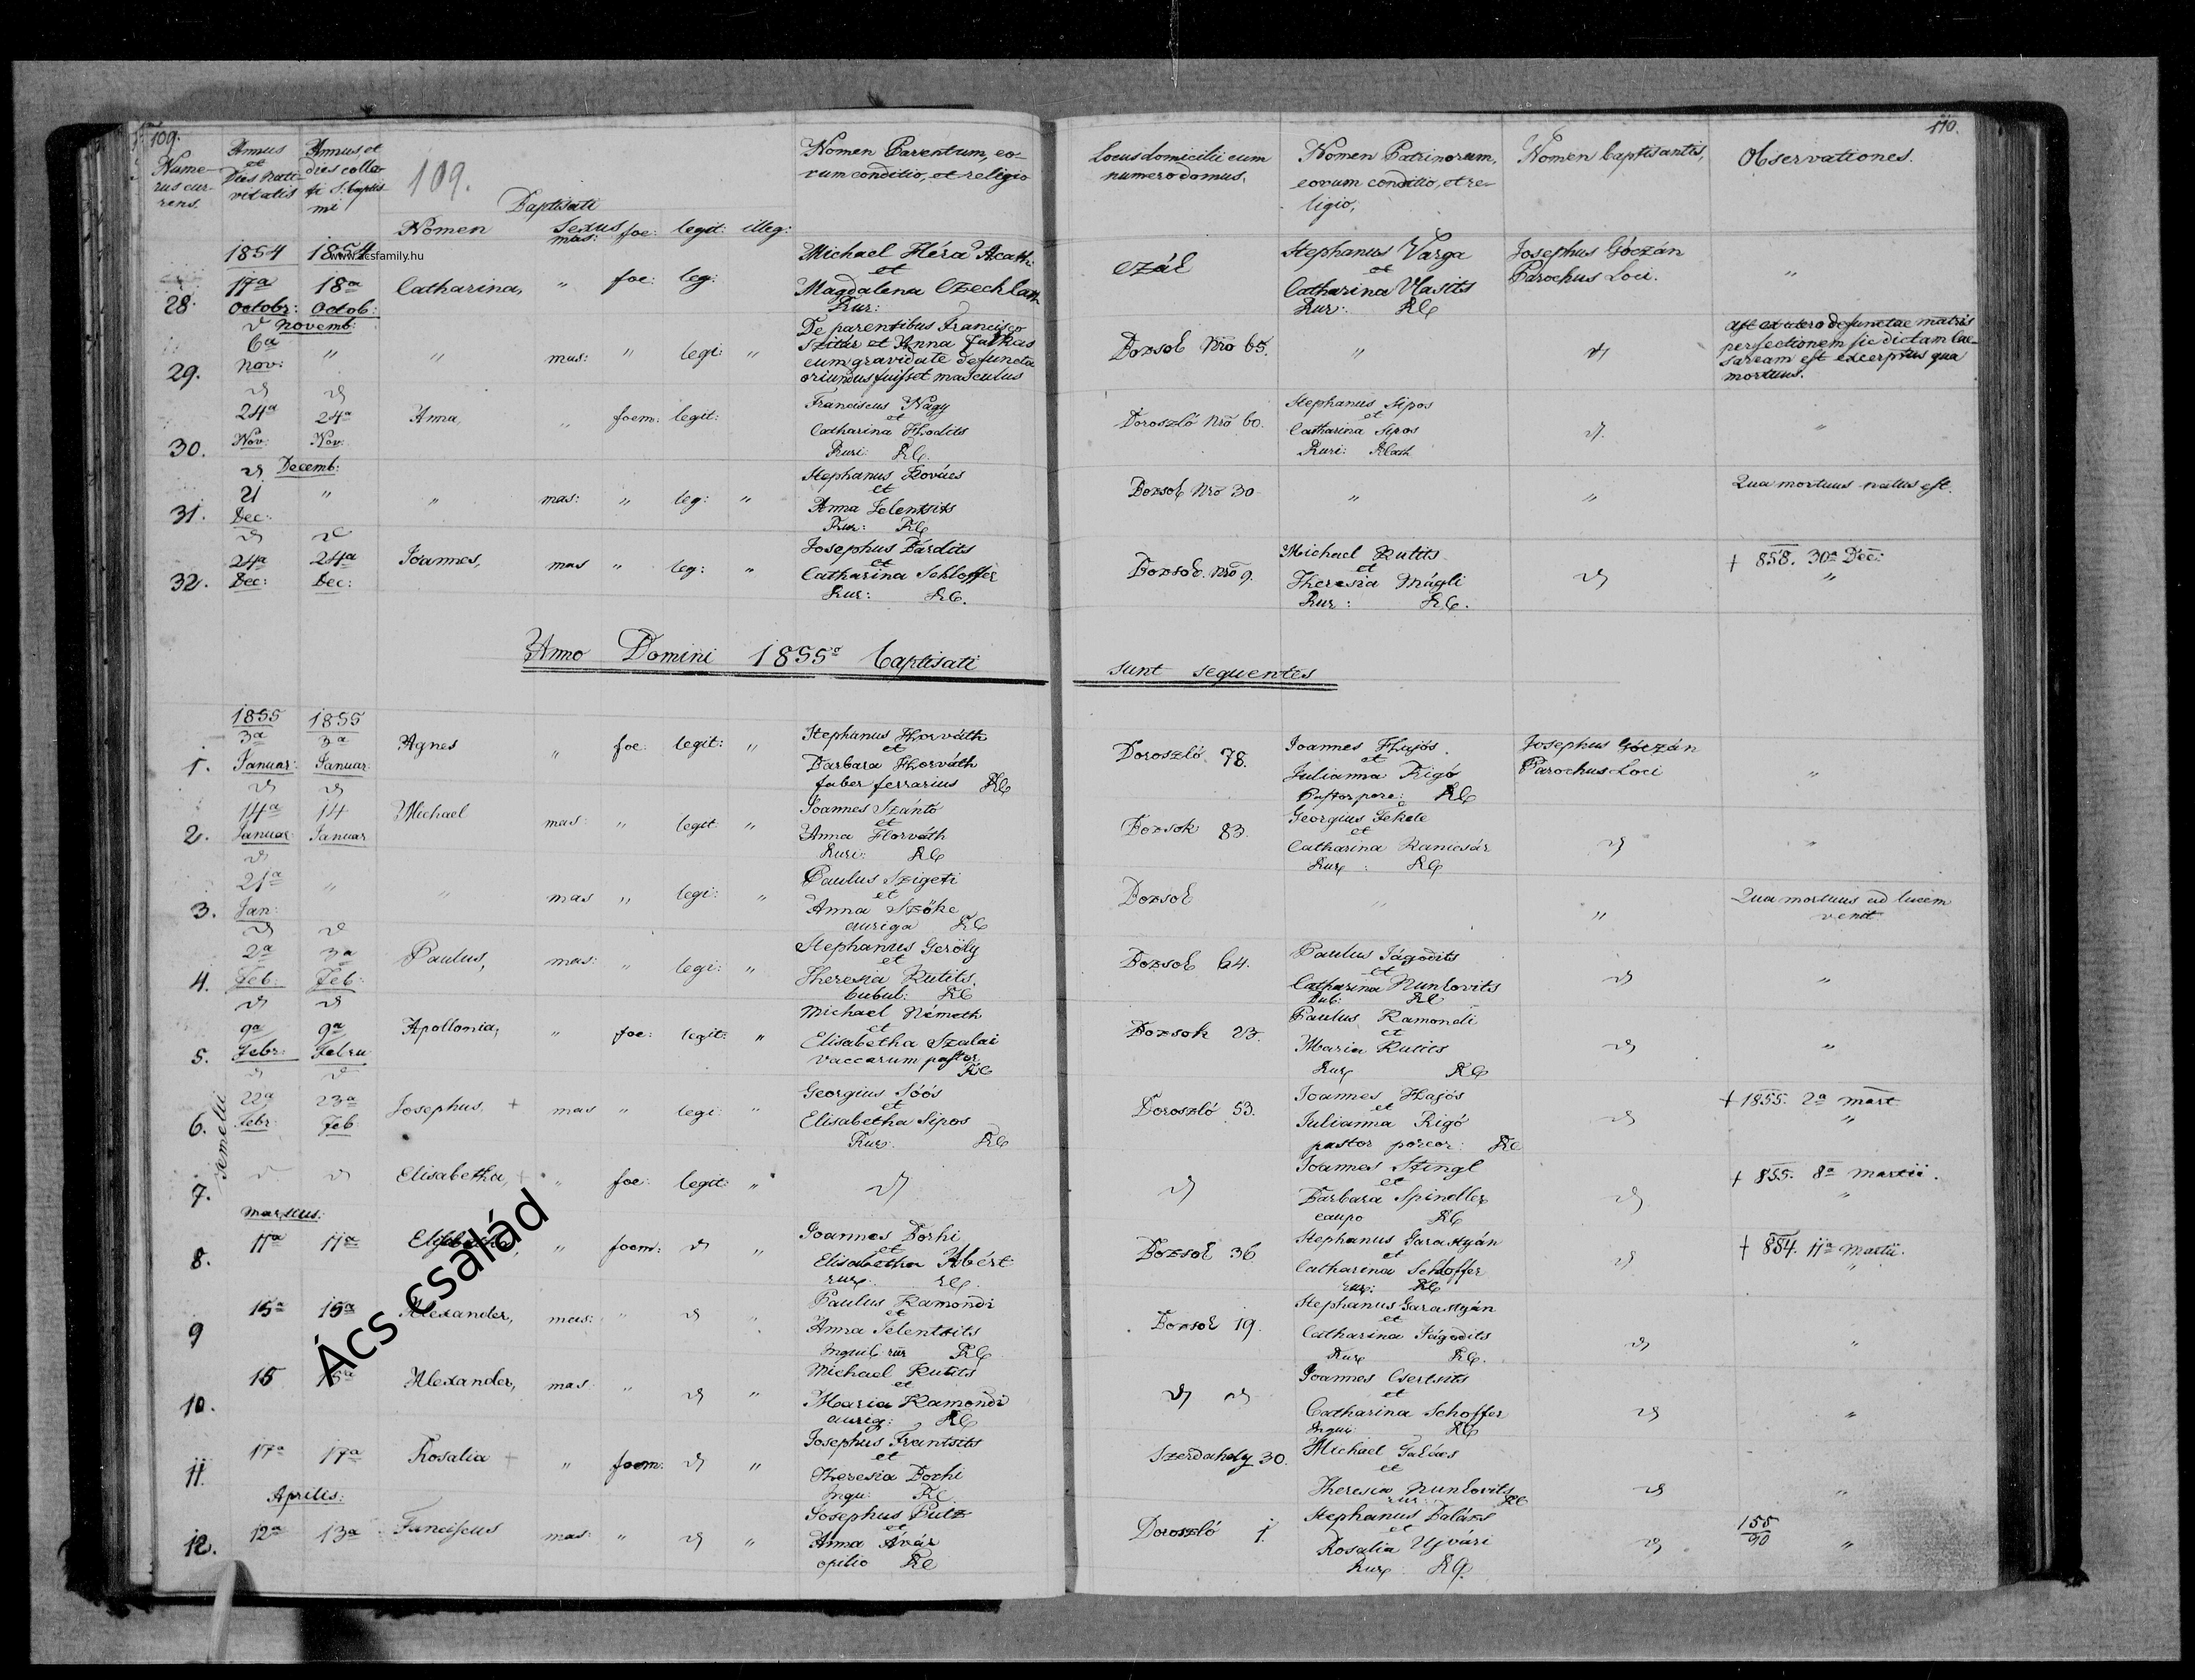 109.
110.
Numerus currens.
Annus et Dies Nativitatis
Annus, et dies collati S. Baptismi
109.
Baptisati
Nomen
Sexus mas: foe: legit: illeg:
Nomen Parentum, eorum conditio, et religio
Locus domicilii cum numero domus.
Nomen Patrinorum, eorum conditio, et religio,
Nomen Baptisantis,
Observationes.
1854 1854
www.acsfamily.hu
28. 17a Octobr: 18a Octob: Catharina, " foe: leg:
Michael Héra Acath:
et
Magdalena Czechlam
Rur:
Czák
Stephanus Varga
et
Catharina Vlasits
Rur: RC
Josephus Góczán
Parochus Loci.
"
Novemb:
29. 6a Nov: " " mas: " legi: "
De parentibus Francisco
et Anna Farkas
cum gravidate defuncta
oriundus fuisset masculus
Dozsok Nro 65.
"
perfectionem sic dictam Cae-
saream est excerptus qua
mortuus.
30. 24a Nov: 24a Nov: Anna, " foem: legit:
Franciscus Nagy
et
Catharina Hodits
Ruri: RC.
Doroszló Nro 60.
Stephanus Sipos
et
Catharina Sipos
Ruri: RCath
"
Decemb:
31. 21 Dec: " " mas: " leg: "
Stephanus Kovács
et
Anna Jelentsits
Rur: RC
Dozsok Nro 30
"
"
Qua mortuus natus est.
32. 24a Dec: 24a Dec: Joannes, mas " leg: "
Josephus Bárdits
et
Catharina Schloffer
Rur: RC.
Dozsok Nro 9.
Michael Kutits
et
Theresia Mágli
Rur: RC.
+ 858. 30a Dec:
"
Anno Domini 1855o Baptisati sunt sequentes
1855 1855
1. 3a Januar: 3a Januar Agnes " foe: legit: "
Stephanus Horváth
et
Barbara Horváth
faber ferrarius RC
Doroszló 78.
Joannes Hajós.
et
Julianna Rigó
Pastor porc: RC
Josephus Góczán
Parochus Loci
"
2. 14a Januar 14 Januar Michael mas: " legit: "
Joannes Szántó
et
Anna Horváth
Ruri: RC
Dozsok 83.
Georgius Fekete
et
Catharina Kanicsár
Rur: RC
"
3. 21a Jan: " " mas " legi: "
Paulus Szigeti
et
Anna Szőke
auriga RC
Dozsok
"
"
Qua mortuus ad lucem
venit
4. 2a Feb: 3a Feb: Paulus, mas: " legi: "
Stephanus Geröly
et
Theresia Kutits.
bubul: RC
Dozsok 64.
Paulus Jágodits
et
Catharina Nunkovits
Bub: RC
"
5. 9a Febr: 9a Febru Apollonia, " foe: legit: "
Michael Németh
et
Elisabetha Szalai
vaccarum pastor.
RC
Dozsok 23.
Paulus Ramondi
et
Maria Kutits
Rur RC
"
Gemelli
6. 22a Febr: 23a Feb Josephus, + mas " legi: "
Georgius Sóós
et
Elisabetha Sipos
Rur: RC
Doroszló 53.
Joannes Hajós
et
Julianna Rigó
pastor porcor: RC
+ 1855. 2a Mart
"
7. Elisabetha, + " foe: legit: "
Joannes Stingl
et
Barbara Spindler
caupo RC
+ 855. 8a Martii.
"
Martius:
8. 11a 11a Elisabetha, " foem: "
Joannes Dorhi
et
Elisabetha Albért
rur: RC.
Dozsok 36
Stephanus Garastyán
et
Catharina Schloffer
rur: RC
+ 854. 11a Martii.
"
9 15a 15a Alexander, mas: " "
Paulus Ramondi
et
Anna Jelentsits
Inquil. rur RC
Dozsok 19.
Stephanus Garastyán
et
Catharina Jágodits
Rur RC.
"
10. 15 15a Alexander, mas: " "
Michael Kutits
et
Maria Ramondi
aurig: RC
Joannes Csertsits
et
Catharina Schoffer
Inqui: RC
"
11. 17a 17a Rosalia + " foem: "
Josephus Frantsits
et
Theresia Dorhi
Inqu: RC
Szerdahely 30.
Michael Takács
et
Theresia Nunkovits
rur: RC
"
Aprilis:
12. 12a 13a Franciscus mas: " "
Josephus Putz
et
Anna Avár
opilio RC
Doroszló 1.
Stephanus Balázs
et
Rosalia Ujvári
Rur RC.
155
90
"
Ács család